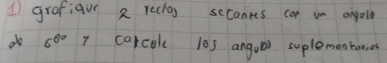 ① grafique 2 rectas secantes con un angulo
de 600 y carcule los angulos suplementarios